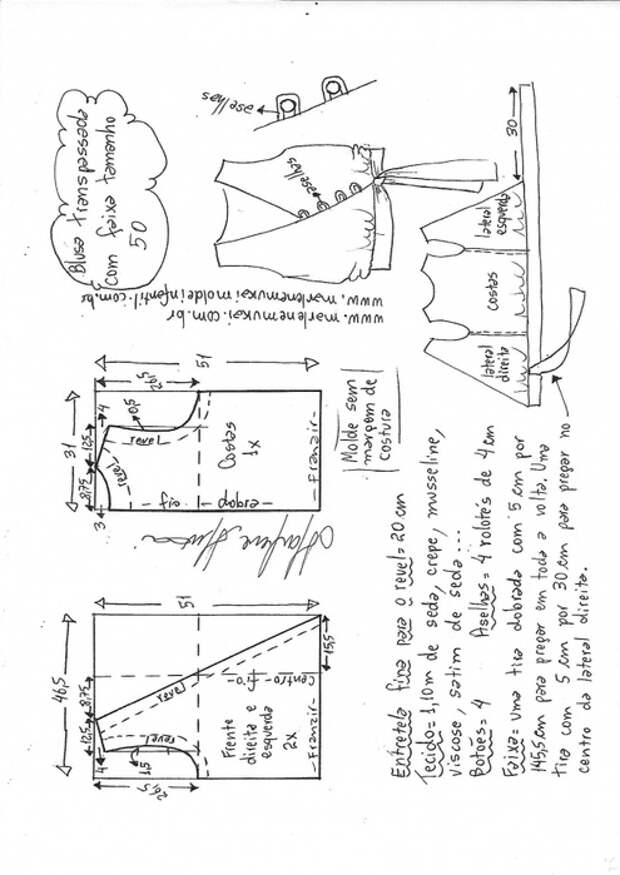 Blusa transpassada
com faixa tamanho
50
www.marlenemukai.com.br
www.marlenemukaimoldeinfantil.com.br
aselhas
aselhas
30
lateral
esquerda
costas
lateral
direita
31
8,75
12,5
4
3
26,5
51
0,5
revel
revel
Costas
1x
fio
dobra
-Franzir-
Molde sem
margem de
costura
Marlene Mukai
46,5
12,5
8,75
4
26,5
51
1,5
revel
revel
Centro
-fio-
Frente
direita e
esquerda
2x
-Franzir-
15,5
Entretela fina para o revel=20 cm
Tecido=1,10m de seda, crepe, musseline,
viscose, satim de seda...
Botões=4 Aselhas=4 rolotês de 4 cm
Faixa=uma tira dobrada com 5 cm por
145,5 cm para pregar em toda a volta. Uma
tira com 5 cm por 30 cm para pregar no
centro da lateral direita.